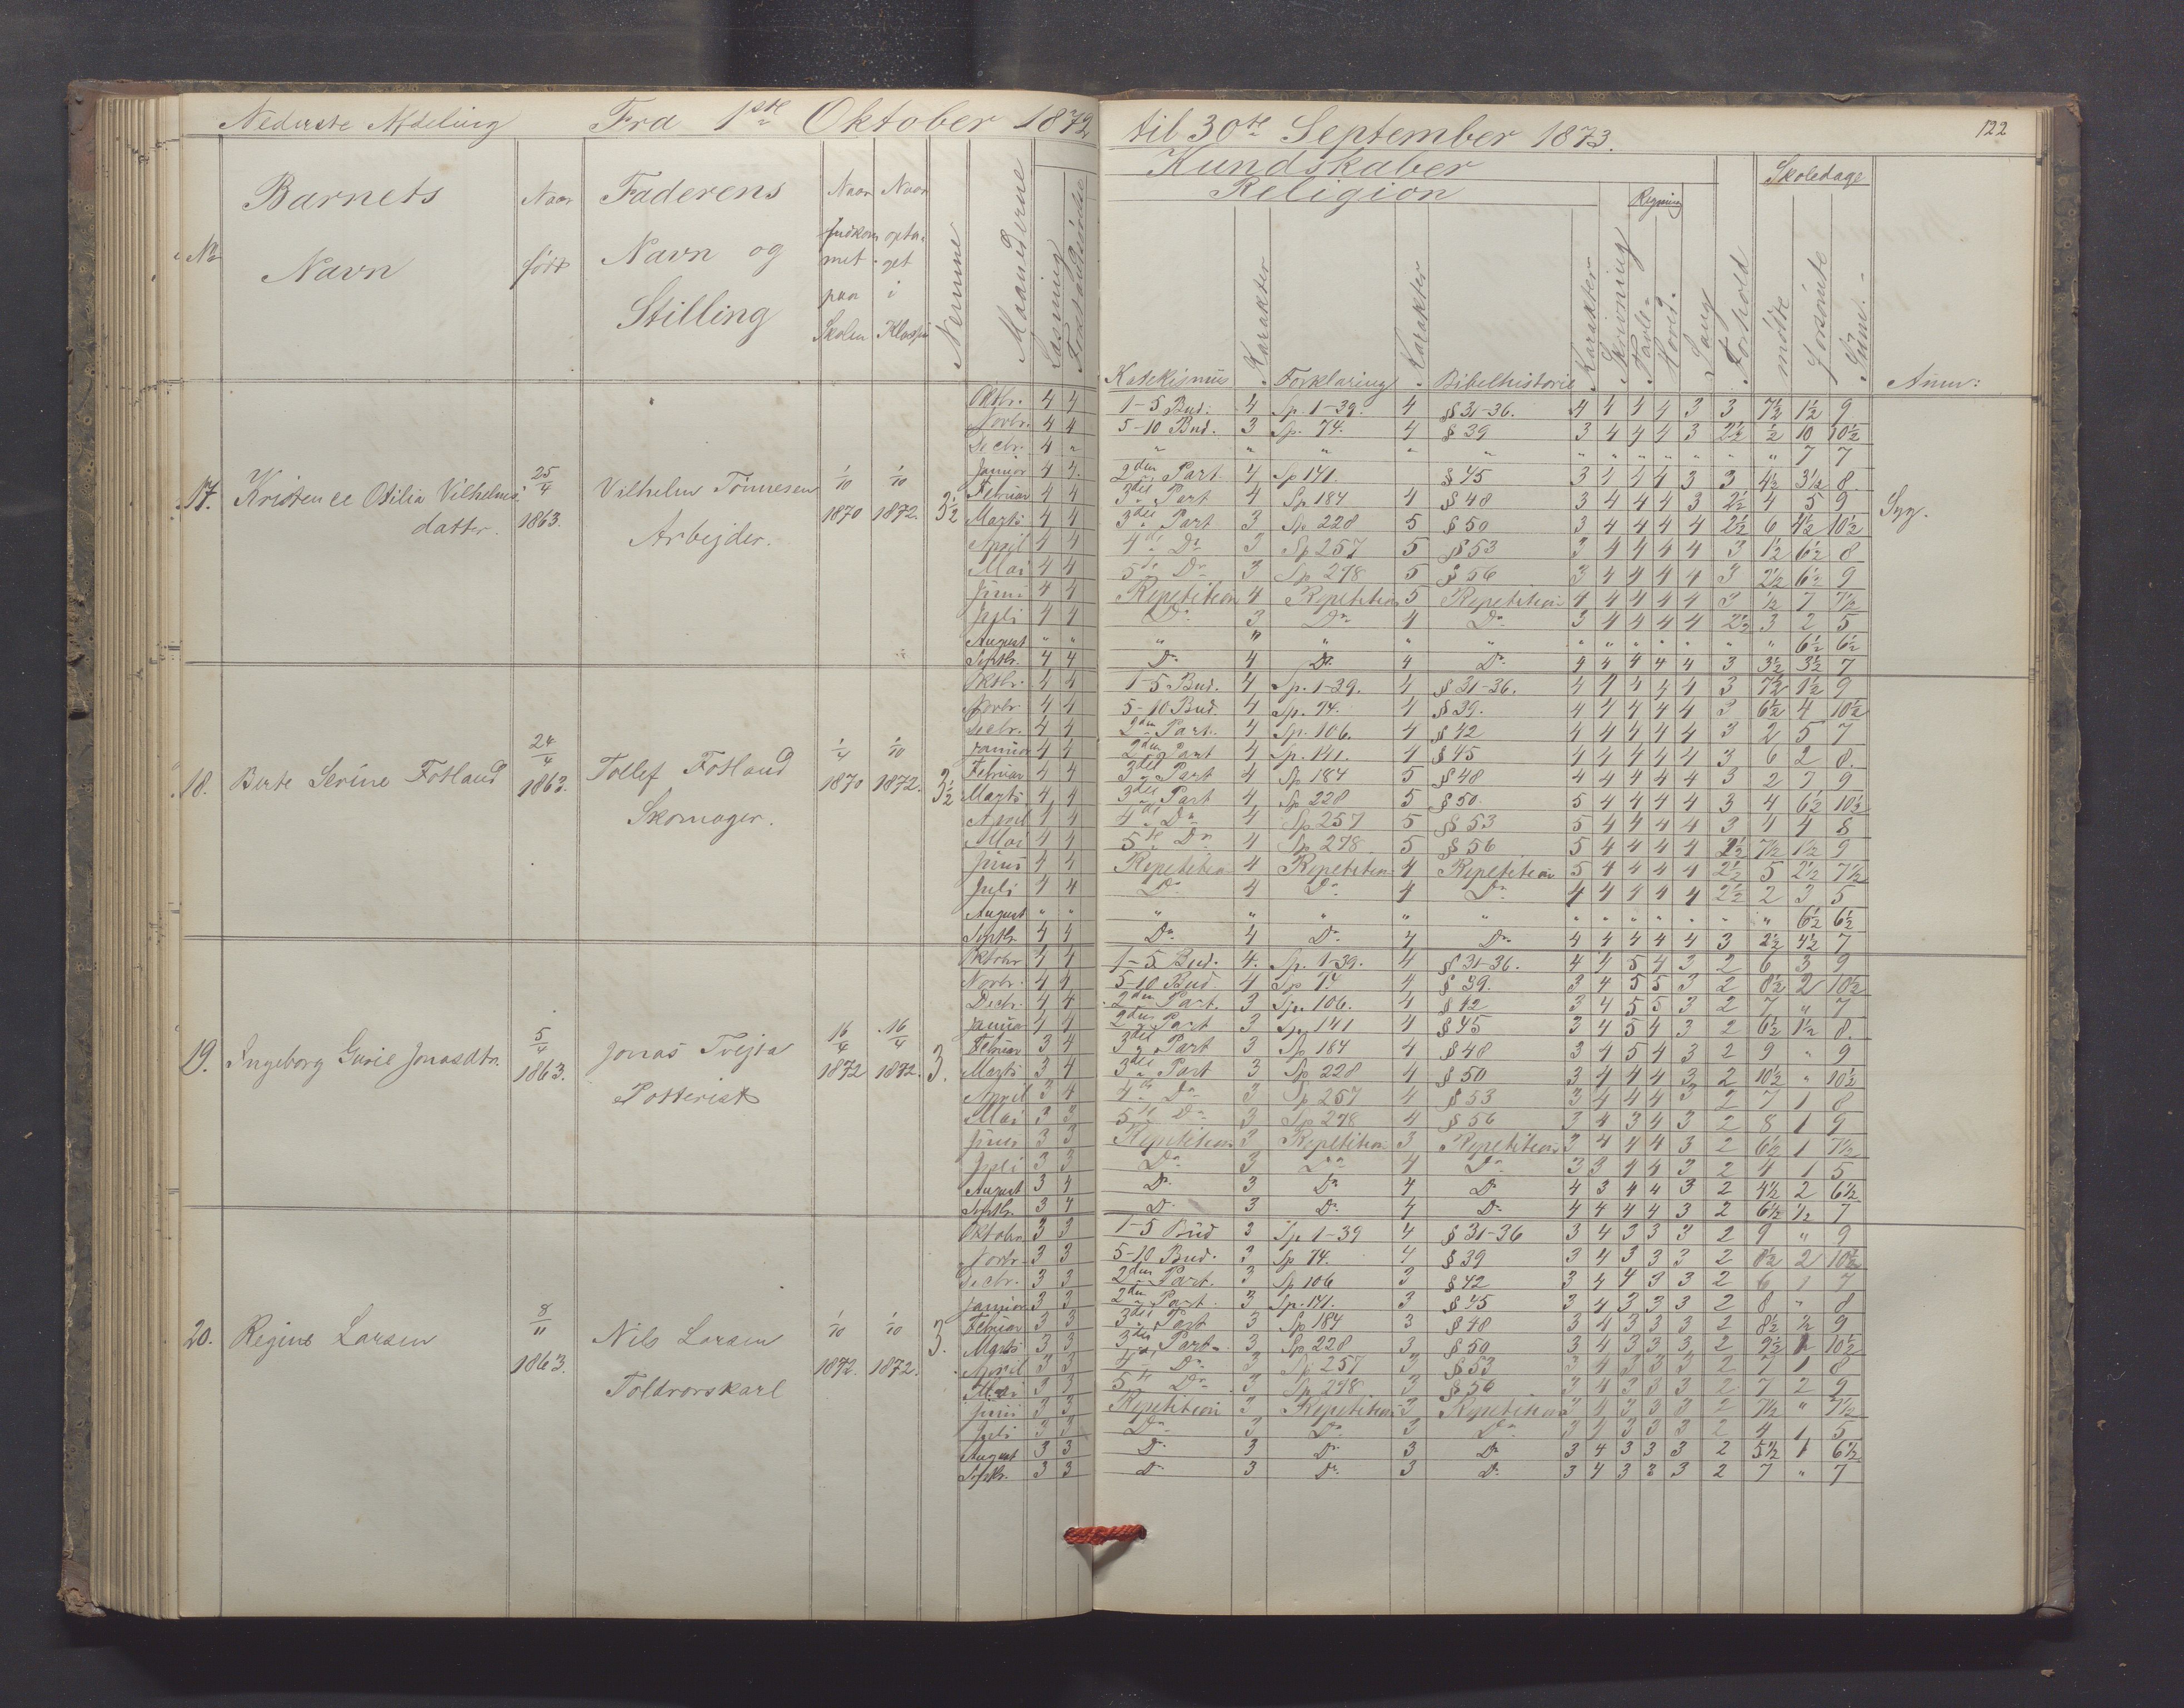 Nederste Afdeling Fra 1ste Oktober 1872 til 30te September 1873. 122
Kundskaber
Religion Regning Skoledage
No Barnets Navn Naar født Faderens Navn og Stilling Naar indkommet paa Skolen Naar optaget i Klassen Nemme Maanederne Læsning Forstandsøvelse Katekismus Karakter Forklaring Karakter Bibelhistorie Karakter Skrivning Tavle- Hoved- Sang Forhold mødte forsømte Sum. Anm:
17. Kristence Otilia Vilhelmsdatter. 25/4 1863. Vilhelm Tönnesen Arbejder. 1/10 1870 1/10 1872. 3½
Oktbr. 4 4 1-5 Bud. 4 Sp. 1-39. 4 § 31-36. 4 4 4 4 3 3 7½ 1½ 9
Novbr. 4 4 5-10 Bud. 3 Sp. 74. 4 § 39 3 4 4 4 3 2½ ½ 10 10½
Decbr. 4 " " " " " " " " " " " " " " 7 7
Januar 4 4 2den Part. 4 Sp 141. § 45 3 4 4 4 3 3 4½ 3½ 8
Februar 4 4 3die Part 4 Sp 184 4 § 48 3 4 4 4 3 2½ 4 5 9 Syg.
Marts 4 4 3die Part 3 Sp 228 5 § 50 3 4 4 4 4 2½ 6 4½ 10½
April 4 4 4de Do 3 Sp 257 5 § 53 3 4 4 4 4 3 1½ 6½ 8
Mai 4 4 5te Do 3 Sp 278 5 § 56 3 4 4 4 4 3 2½ 6½ 9
Juni 4 4 Repetition 4 Repetition 5 Repetition 4 4 4 4 4 3 ½ 7 7½
Juli 4 4 Do 3 Do 4 Do 3 4 4 4 4 2½ 3 2 5
August " " " " " " " " " " " " " " 6½ 6½
Septbr. 4 4 Do 4 Do 4 Do 4 4 4 4 4 3 3½ 3½ 7
18. Berte Serine Fotland 24/4 1863. Tollef Fotland Skomager. 1/4 1870 1/10 1872. 3½
Oktbr. 4 4 1-5 Bud. 4 Sp. 1-39. 4 § 31-36. 4 4 4 4 4 3 7½ 1½ 9
Novbr. 4 4 5-10 Bud 4 Sp. 74. 4 § 39. 4 4 4 4 4 3 6½ 4 10½
Decbr. 4 4 2den Part. 4 Sp. 106. 4 § 42 4 4 4 4 4 3 2 5 7
Januar 4 4 2den Part 4 Sp. 141. 4 § 45 4 4 4 4 4 3 6 2 8.
Februar 4 4 3die Part 4 Sp 184 5 § 48 4 4 4 4 4 3 2 7 9
Marts 4 4 3die Part 4 Sp 228 5 § 50 5 4 4 4 4 3 4 6½ 10½
April 4 4 4de Do 4 Sp 257 5 § 53 5 4 4 4 4 3 4 4 8
Mai 4 4 5te Do 4 Sp 278 5 § 56 5 4 4 4 4 2½ 7½ 1½ 9
Juni 4 4 Repetition 4 Repetition 4 Repetition 5 4 4 4 4 2½ 5 2½ 7½
Juli 4 4 Do 4 Do 4 Do 4 4 4 4 4 2½ 2 3 5
August " " " " " " " " " " " " " " 6½ 6½
Septbr. 4 4 Do 4 Do 4 Do 4 4 4 4 4 3 2½ 4½ 7
19. Ingeborg Gurie Jonasdtr. 5/4 1863. Jonas Tvejta Potterist 16/4 1872 16/4 1872. 3.
Oktobr 4 4 1-5 Bud. 4. Sp. 1-39. 4 § 31-36. 4 4 5 4 3 2 6 3 9
Novbr. 4 4 5-10 Bud. 4 Sp 74 4 § 39. 3 4 5 5 3 2 8½ 2 10½
Decbr. 4 4 2den Part. 3 Sp. 106. 4 § 42 3 4 5 5 3 2 7 " 7
Januar 4 4 2den Part 3 Sp. 141 4 § 45 3 4 5 4 3 2 6½ 1½ 8.
Februar 3 4 3die Part 3 Sp 184 4 § 48 3 4 5 4 3 2 9 " 9
Marts 3 4 3die Part 3 Sp 228 4 § 50 3 4 4 4 3 2 10½ " 10½
April 3 4 4de Do 3 Sp 257 4 § 53 3 4 4 4 3 2 7 1 8
Mai 3 3 5te Do 3 Sp 278 4 § 56 3 4 3 4 3 2 8 1 9
Juni 3 3 Repetition 3 Repetition 3 Repetition 3 4 4 4 3 2 6½ 1 7½
Juli 3 3 Do 3 Do 4 Do 3 3 4 4 3 2 4 1 5
August 3 4 Do 3 Do 4 Do 4 3 4 4 3 2 4½ 2 6½
Septbr. 3 4 Do 3 Do 4 Do 4 4 4 4 3 2 6½ ½ 7
20. Regine Larsen 8/11 1863. Nils Larsen Toldrorskarl 1/10 1872. 1/10 1872. 3.
Oktobr 3 3 1-5 Bud 3 Sp 1-39 4 § 31-36 3 4 3 3 3 2 9 " 9
Novbr. 3 3 5-10 Bud. 3 Sp 74. 4 § 39 3 4 3 3 3 2 8½ 2 10½
Decbr. 3 3 2den Part. 3 Sp 106 3 § 42 3 4 4 3 3 2 6 1 7
Januar 3 3 2den Part. 3 Sp. 141. 3 § 45 3 4 3 3 3 2 8 " 8
Februar 3 3 3die Part 3 Sp 184 3 § 48 3 4 3 3 3 2 8½ ½ 9
Marts 3 3 3die Part 3 Sp 228 3 § 50 3 4 3 3 3 2 9½ 1 10½
April 3 3 4de Do 3 Sp 257 3 § 53 3 4 3 3 3 2 7 1 8
Mai 3 3 5te Do 3 Sp 278 3 § 56 3 4 3 3 3 2 7 2 9
Juni 3 3 Repetition 3 Repetition 3 Repetition 3 4 3 3 3 2 7½ " 7½
Juli 3 3 Do 3 Do 3 Do 3 4 3 3 3 2 4 1 5
August 3 3 Do 3 Do 3 Do 3 4 3 3 3 2 5½ 1 6½
Septbr. 3 3 Do 3 Do 3 Do 3 4 3 3 3 2 7 " 7